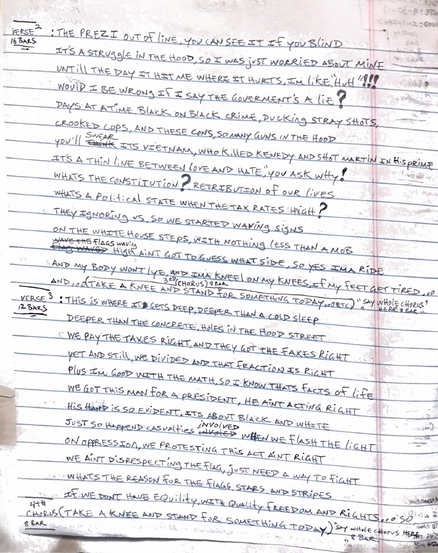 VERSE 2
16 BARS
: THE PREZI OUT OF LINE, YOU CAN SEE IT IF YOU BLIND
IT'S A STRUGGLE IN THE HOOD, SO I WAS JUST WORRIED ABOUT MINE
UNTILL THE DAY IT HIT ME WHERE IT HURTS, I'M LIKE, "HUH"!!!
WOULD I BE WRONG IF I SAY THE GOVERMENT'S A LIE?
DAYS AT ATIME BLACK ON BLACK CRIME, DUCKING STRAY SHOTS,
CROOKED COPS, AND THESE CONS, SO MNY GUNS IN THE HOOD
YOU'LL SWEAR ITS VIETNAM, WHO KILLED KENEDY AND SHOT MARTIN IN HIS PRIME
IT'S A THIN LINE BETWEEN LOVE AND HATE, YOU ASK WHY!
WHATS THE CONSTITUTION? RETRIBUTION OF OUR LIVES
WHATS A POLITICAL STATE WHEN THE TAX RATES HIGH?
THEY IGNORING US, SO WE STARTED WAVING SIGNS
ON THE WHITE HOUSE STEPS, WITH NOTHING LESS THAN A MOB
WAVE THE FLAGS WAVING
HIGH AIN'T GOT TO GUESS WHAT SIDE, SO YES IMA RIDE
AND MY BODY WONT LYE, AND IMA KNEEL ON MY KNEES, IF MY FEET GET TIRED...
3RD (CHORUS) 8 BAR
AND...(TAKE A KNEE AND STAND FOR SOMETHING TODAY...ETC) "SAY WHOLE CHORUS HERE 8 BAR"
VERSE 3
12 BARS
: THIS IS WHERE IT GETS DEEP, DEEPER THAN A COLD SLEEP
DEEPER THAN THE CONCRETE, HOLES IN THE HOOD STREET
WE PAY THE TAXES RIGHT, AND THEY GOT THE FAXES RIGHT
YET AND STILL, WE DIVIDED AND THAT FRACTION IS RIGHT
PLUS IM GOOD WITH THE MATH, SO I KNOW THATS FACTS OF LIFE
WE GOT THIS MAN FOR A PRESIDENT, HE AINT ACTING RIGHT
HIS IS SO EVIDENT, ITS ABOUT BLACK AND WHITE
JUST SO HAPPEND CASUALTIES INVOLVED WHEN WE FLASH THE LIGHT
ON OPPRESSION, WE PROTESTING THIS ACT AINT RIGHT
WE AINT DISRESPECTING THE FLAG, JUST NEED A WAY TO FIGHT
WHATS THE REASON FOR THE FLAGS, STARS, AND STRIPES
IF WE DONT HAVE EQUILITY, WITH QUALITY FREEDOM AND RIGHTS...SO
4TH
CHORUS (TAKE A KNEE AND STAND FOR SOMETHING TODAY) "SAY WHOLE CHORUS HERE
8 BAR
8 BAR"